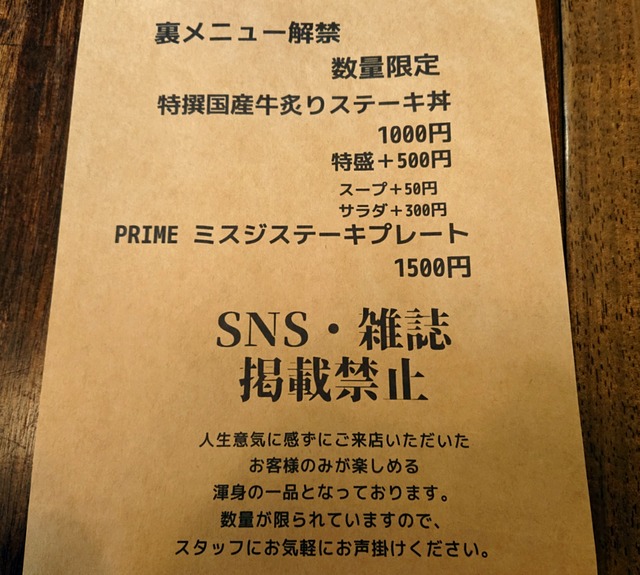 裏メニュー解禁
数量限定
特撰国産牛炙りステーキ丼
1000円
特盛＋500円
スープ＋50円
サラダ＋300円
PRIME ミスジステーキプレート
1500円
SNS・雑誌
掲載禁止
人生意気に感ずにご来店いただいた
お客様のみが楽しめる
渾身の一品となっております。
数量が限られていますので、
スタッフにお気軽にお声掛けください。